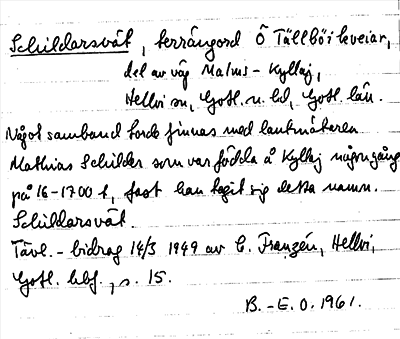 Schildarsvät, terrängord Ö Tällböi leveiar,
del av väg Malms - Kyllaj,
Hellvi sn, Gotl. n. hd, Gotl. län.
Något samband torde finnas med lantmätaren
Mathias Schilder som var födda å Kyllaj någon gång
på 16-1700 t, fast han tagit sig detta namn.
Schildarsvät.
Tävl. - bidrag 14/3 1949 av C. Franzén, Hellvi,
Gotl. hbf., s. 15.
B.-E. O. 1961.